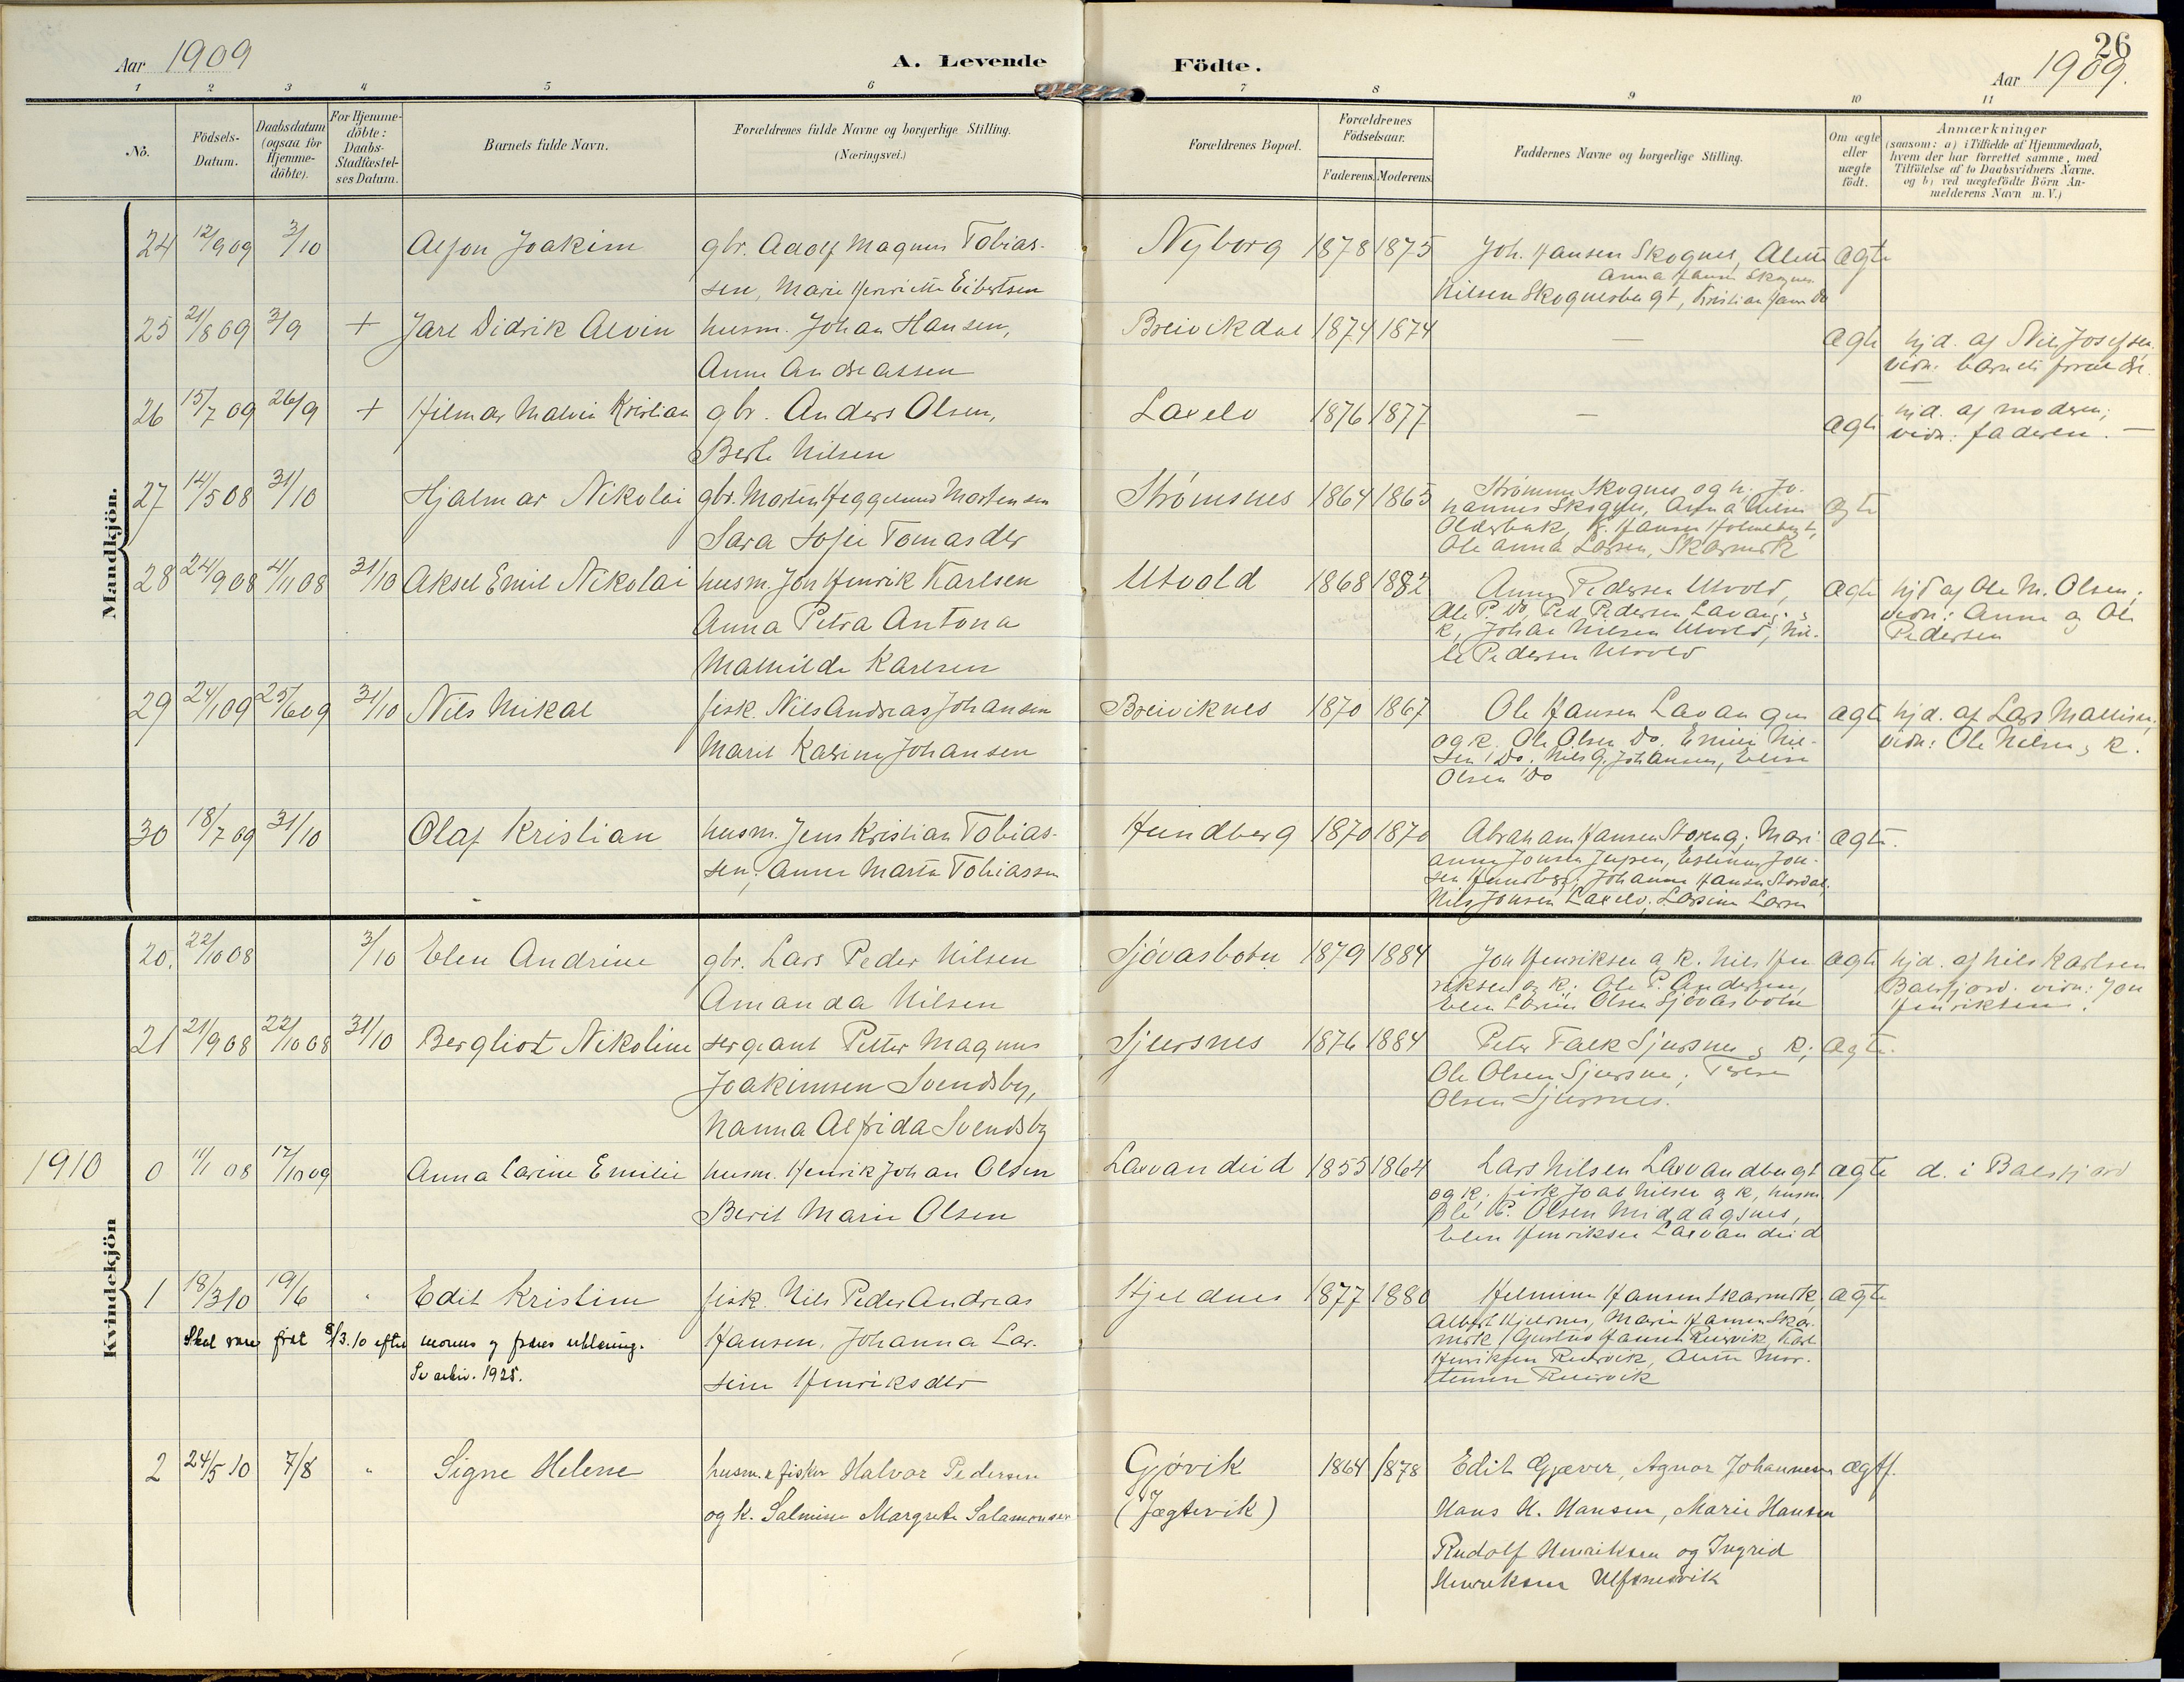 Aar 1909
A. Levende
Födte.
26
Aar 1909.
1 2 3 4 5 6 7 8 9 10 11
No.
Födsels-
Datum.
Daabsdatum
(ogsaa for
Hjemme-
döbte).
For Hjemme-
döbte:
Daabs-
Stadfæstel-
ses Datum.
Barnets fulde Navn.
Forældrenes fulde Navne og borgerlige Stilling.
(Næringsvei.)
Forældrenes Bopæl.
Forældrenes
Födselsaar.
Faderens. Moderens.
Faddernes Navne og borgerlige Stilling.
Om ægte
eller
uægte
födt.
Anmærkninger
(saasom: a) i Tilfælde af Hjemmedaab,
hvem der har forrettet samme, med
Tilföielse af to Daabsvidners Navne.
og b) ved uægtefödte Börn An-
melderens Navn m. V.)
Mandkjön.
24 12/9 09 3/10 Alfon Joakim gbr. Adolf Magnus Tobias- Nyborg 1878 1875 Joh. Hansen Skognes, ægte
Anna Hansen Skognes
sen, Marie Henriette Eibertsen Nilsen Skognesbergt, Kristian Do
25 21/8 09 3/9 + Jarl Didrik Alvin husm. Johan Hansen, Breivikdal 1874 1874 — ægte hjd. af Nils Josefsen
Anna Andreassen vidn: barnets forældre.
26 15/7 09 26/9 + Hilmar Malvin Kristian gbr. Anders Olsen, Laxelv 1876 1877 — ægte hjd. af moderen;
Berte Nilsen vidn: faderen. —
27 14/5 08 31/10 Hjalmar Nikolai gbr. Morten Heggelund Mortensen Strømsnes 1864 1865 Skognes og h. Jo-
hannes Skognes, Anna Nilsen ægte
Olderbak, Hansen
Sara Sofie Tomasdtr Ole Anna Larsen, Skarmunk
28 24/9 08 4/11 08 31/10 Aksel Emil Nikolai husm. Jon Henrik Karlsen Utvold 1868 1882 Anna Pedersen Utvold, ægte hjd af Ole M. Olsen;
Anna Petra Antona Ole P. Do, Ped. Pedersen Lavang og vidn: Anna og Ole
k, Johan Nilsen Utvold, Nil- Pedersen
Mathilde Karlsen Pedersen Utvold
29 24/1 09 25/6 09 31/10 Nils Mikal fisk. Nils Andreas Johansen Breiviknes 1870 1867 Ole Hansen Lavangen ægte hjd. af Lars Mathisen,
Marit Karine Johansen og k. Ole Olsen Do. Emilie Nil- vidn: Ole Nilsen og k.
sen Do. Nils G. Johansen, Elise
Olsen Do
30 18/7 09 31/10 Olaf Kristian husm. Jens Kristian Tobias- Hundberg 1870 1870 Abraham Hansen Storeng; Mari- ægte.
sen; Anne Marta Tobiassen anna Jonsen Jensen, Jon-
sen Hundberg; Johanna Hansen Stordal;
Nils Jonsen Laxelv, Larsine Larsen
Kvindekjön
20. 22/10 08 3/10 Elen Andrine gbr. Lars Peder Nilsen Sjövasbotn 1879 1884 Jon Henriksen og k. Nils Hen- ægte hjd. af Nils Karlsen
Amanda Nilsen riksen og k; Ole P. Andersen, Balsfjord. vidn: Jon
Elen Olsen Sjövasbotn Henriksen.
21 21/9 08 22/10 08 31/10 Bergliot Nikoline sergeant Petter Magnus Sjursnes 1876 1884 Peter Falk Sjursnes og k; ægte.
Joakimsen Svendsby, Ole Olsen Sjursnes;
Nanna Alfrida Svendsby Olsen Sjursnes.
1910 0 11/1 08 17/10 09 Anna Carine Emilie husm. Henrik Johan Olsen Laxvandeid 1855 1864 Lars Nilsen Laxvandbergt ægte d. i Balsfjord
Berit Marie Olsen og k. fisk. Joab Nilsen og k, husm
Ole P. Olsen Middagsnes,
Elen Henriksen Laxvandeid
1 18/3 10 19/6 " Edit Kristine fisk. Nils Peder Andreas Hjeldnes 1877 1880 Helmine Hansen Skarmunk, ægte
Skal være født 8/3.10 efter morens og farens erklæring. Hansen, Johanna Lar- Albert Hjelnes, Marie Hansen Skar-
Se arkiv. 1925. munk, Gustav Hansen Reiervik, Karl
sine Henriksdtr Henriksen Reiervik, Mor-
tensen Reiervik
2 24/5 10 7/8 " Signe Helene husm. & fisker Halvor Pedersen Gjøvik 1864 1878 Edit Gjæver, Agnar Johannesen ægtf.
og k. Salmine Margrete Salamonsen (Jægtevik) Hans H. Hansen, Marie Hansen
Rudolf Henriksen og Ingrid
Henriksen Ulfsnesvik